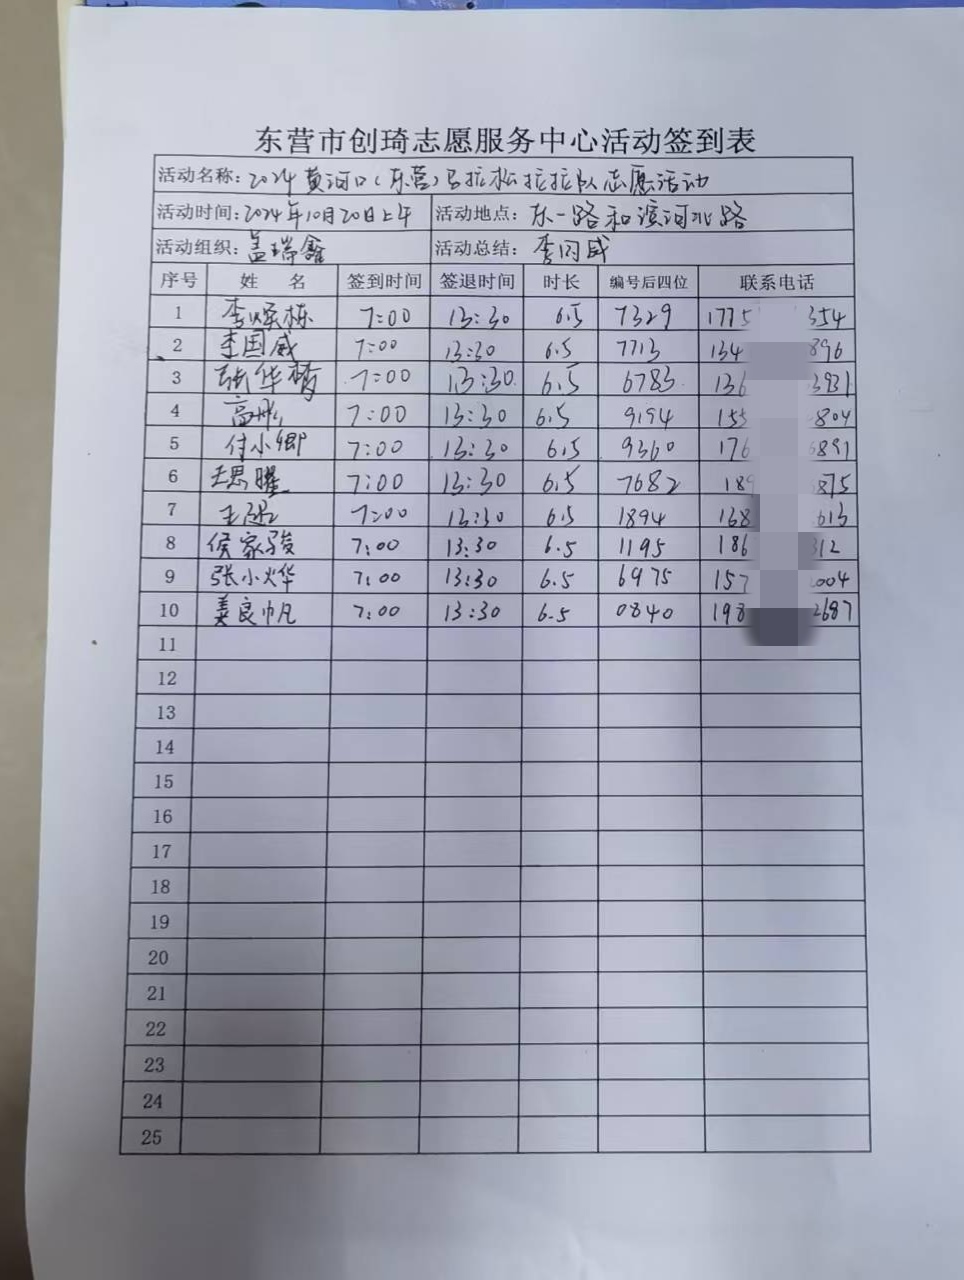 东营市创琦志愿服务中心活动签到表
活动名称: 2024黄河口(东营)马拉松拉拉队志愿活动
活动时间: 2024年10月20日上午 活动地点: 东一路和滨河北路
活动组织: 盖瑞鑫 活动总结: 李国威
序号 姓 名 签到时间 签退时间 时长 编号后四位 联系电话
1 7:00 13:30 6.5 7329 1775 354
2 李国威 7:00 13:30 6.5 7713 134 896
3 张华 7:00 13:30 6.5 6783 136 3931
4 高 7:00 13:30 6.5 9194 155 804
5 付小卿 7:00 13:30 6.5 9360 176 6891
6 王思曜 7:00 13:30 6.5 7682 189 875
7 王 7:00 13:30 6.5 1894 168 613
8 侯家骏 7:00 13:30 6.5 1195 186 312
9 张小烨 7:00 13:30 6.5 6975 157 2004
10 姜良帆 7:00 13:30 6.5 0840 198 2687
11
12
13
14
15
16
17
18
19
20
21
22
23
24
25